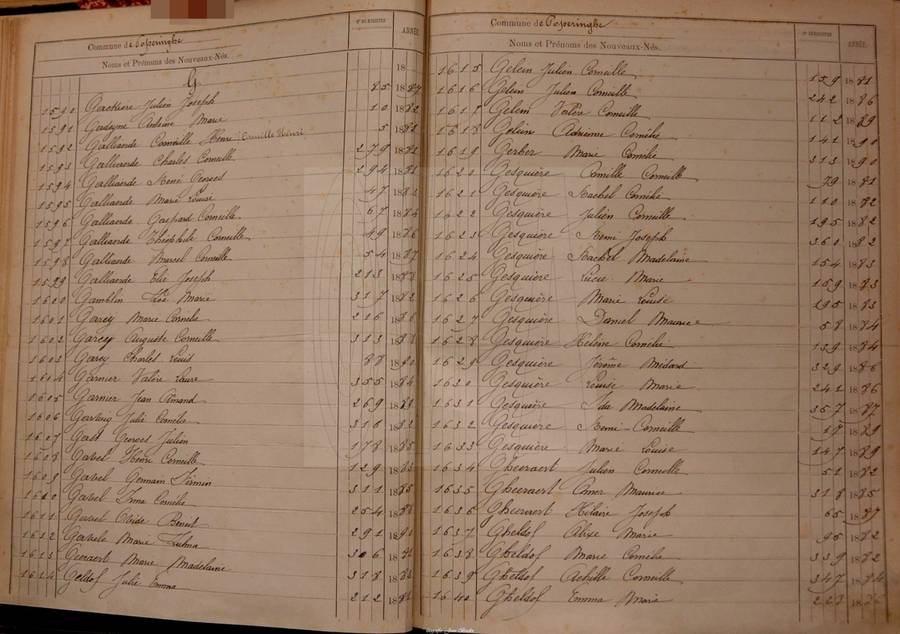 Commune de Poperinghe
Nos DE REGISTRE
ANNÉE
Noms et Prénoms des Nouveaux-Nés.
G
18
1590 Gackiere Julien Joseph 85 1887
1591 Gadeyne Antoine Marie 10 1882
1592 Galliaerde Corneille Henri 5 1881
1593 Galliaerde Charles Corneille 279 1881
1594 Galliaerde René Georges 294 1881
1595 Galliaerde Marie Louise 47 188
1596 Galliaerde Gaspard Corneille 67 1884
1597 Galliaerde Théophile Corneille 49 1886
1598 Galliaerde Marcel Corneille 54 1887
1599 Galliaerde Elie Joseph 213 1888
1600 Gamblin Léa Marie 317 1882
1601 Garcy Marie Cornelie 216 1886
1602 Garcy Auguste Corneille 313 1888
1603 Garcy Charles Louis 88 1890
1604 Garnier Valère Laure 355 1884
1605 Garnier Jean Amand 269 1888
1606 Julie Cornelie 310 1882
1607 Gast Georges Julien 178 1885
1608 Gavel Henri Corneille 129 1883
1609 Gavel Germain Firmin 311 1885
1610 Gavel Irma Cornélie 254 1888
1611 Gavel Benoit 291 1890
1612 Marie Zulma 306
1613 Geeraert Marie Madelaine 318 188
1614 Geldof Julie Emma 212 188
Commune de Poperinghe
Nos DE REGISTRE
ANNÉE
Noms et Prénoms des Nouveaux-Nés.
1615 Gelein Julien Corneille 159 1881
1616 Gelein Julien Corneille 242 1886
1617 Gelein Valère Corneille 112 1889
1618 Gelein Adrienne Cornélie 141 1890
1619 Gerber Marie Cornélie 313 1890
1620 Gesquière Camille Corneille 79 1881
1621 Gesquière Rachel Cornélie 110 1882
1622 Gesquière Julien Corneille 195 1882
1623 Gesquière Remi Joseph 360 1882
1624 Gesquière Rachel Madelaine 154 1883
1625 Gesquière Lucie Marie 159 1883
1626 Gesquière Marie Louise 195 1883
1627 Gesquière Daniel Maurice 58 1884
1628 Gesquière Helène Cornélie 139 1884
1629 Gesquière Jérôme Médard 329 1886
1630 Gesquière Louise Marie 241 1886
1631 Gesquière Ida Madelaine 357 1887
1632 Gesquière Remi Corneille 17 1889
1633 Gesquière Marie Louise 147 1889
1634 Gheeraert Julien Corneille 51 1882
1635 Gheeraert Omer Maurice 318 1885
1636 Gheeraert Hilaire Joseph 65 1887
1637 Gheldof Alixe Marie 95 1882
1638 Gheldof Marie Cornélie 339 1882
1639 Gheldof Achille Corneille 347 1884
1640 Gheldof Emma Marie 223 18